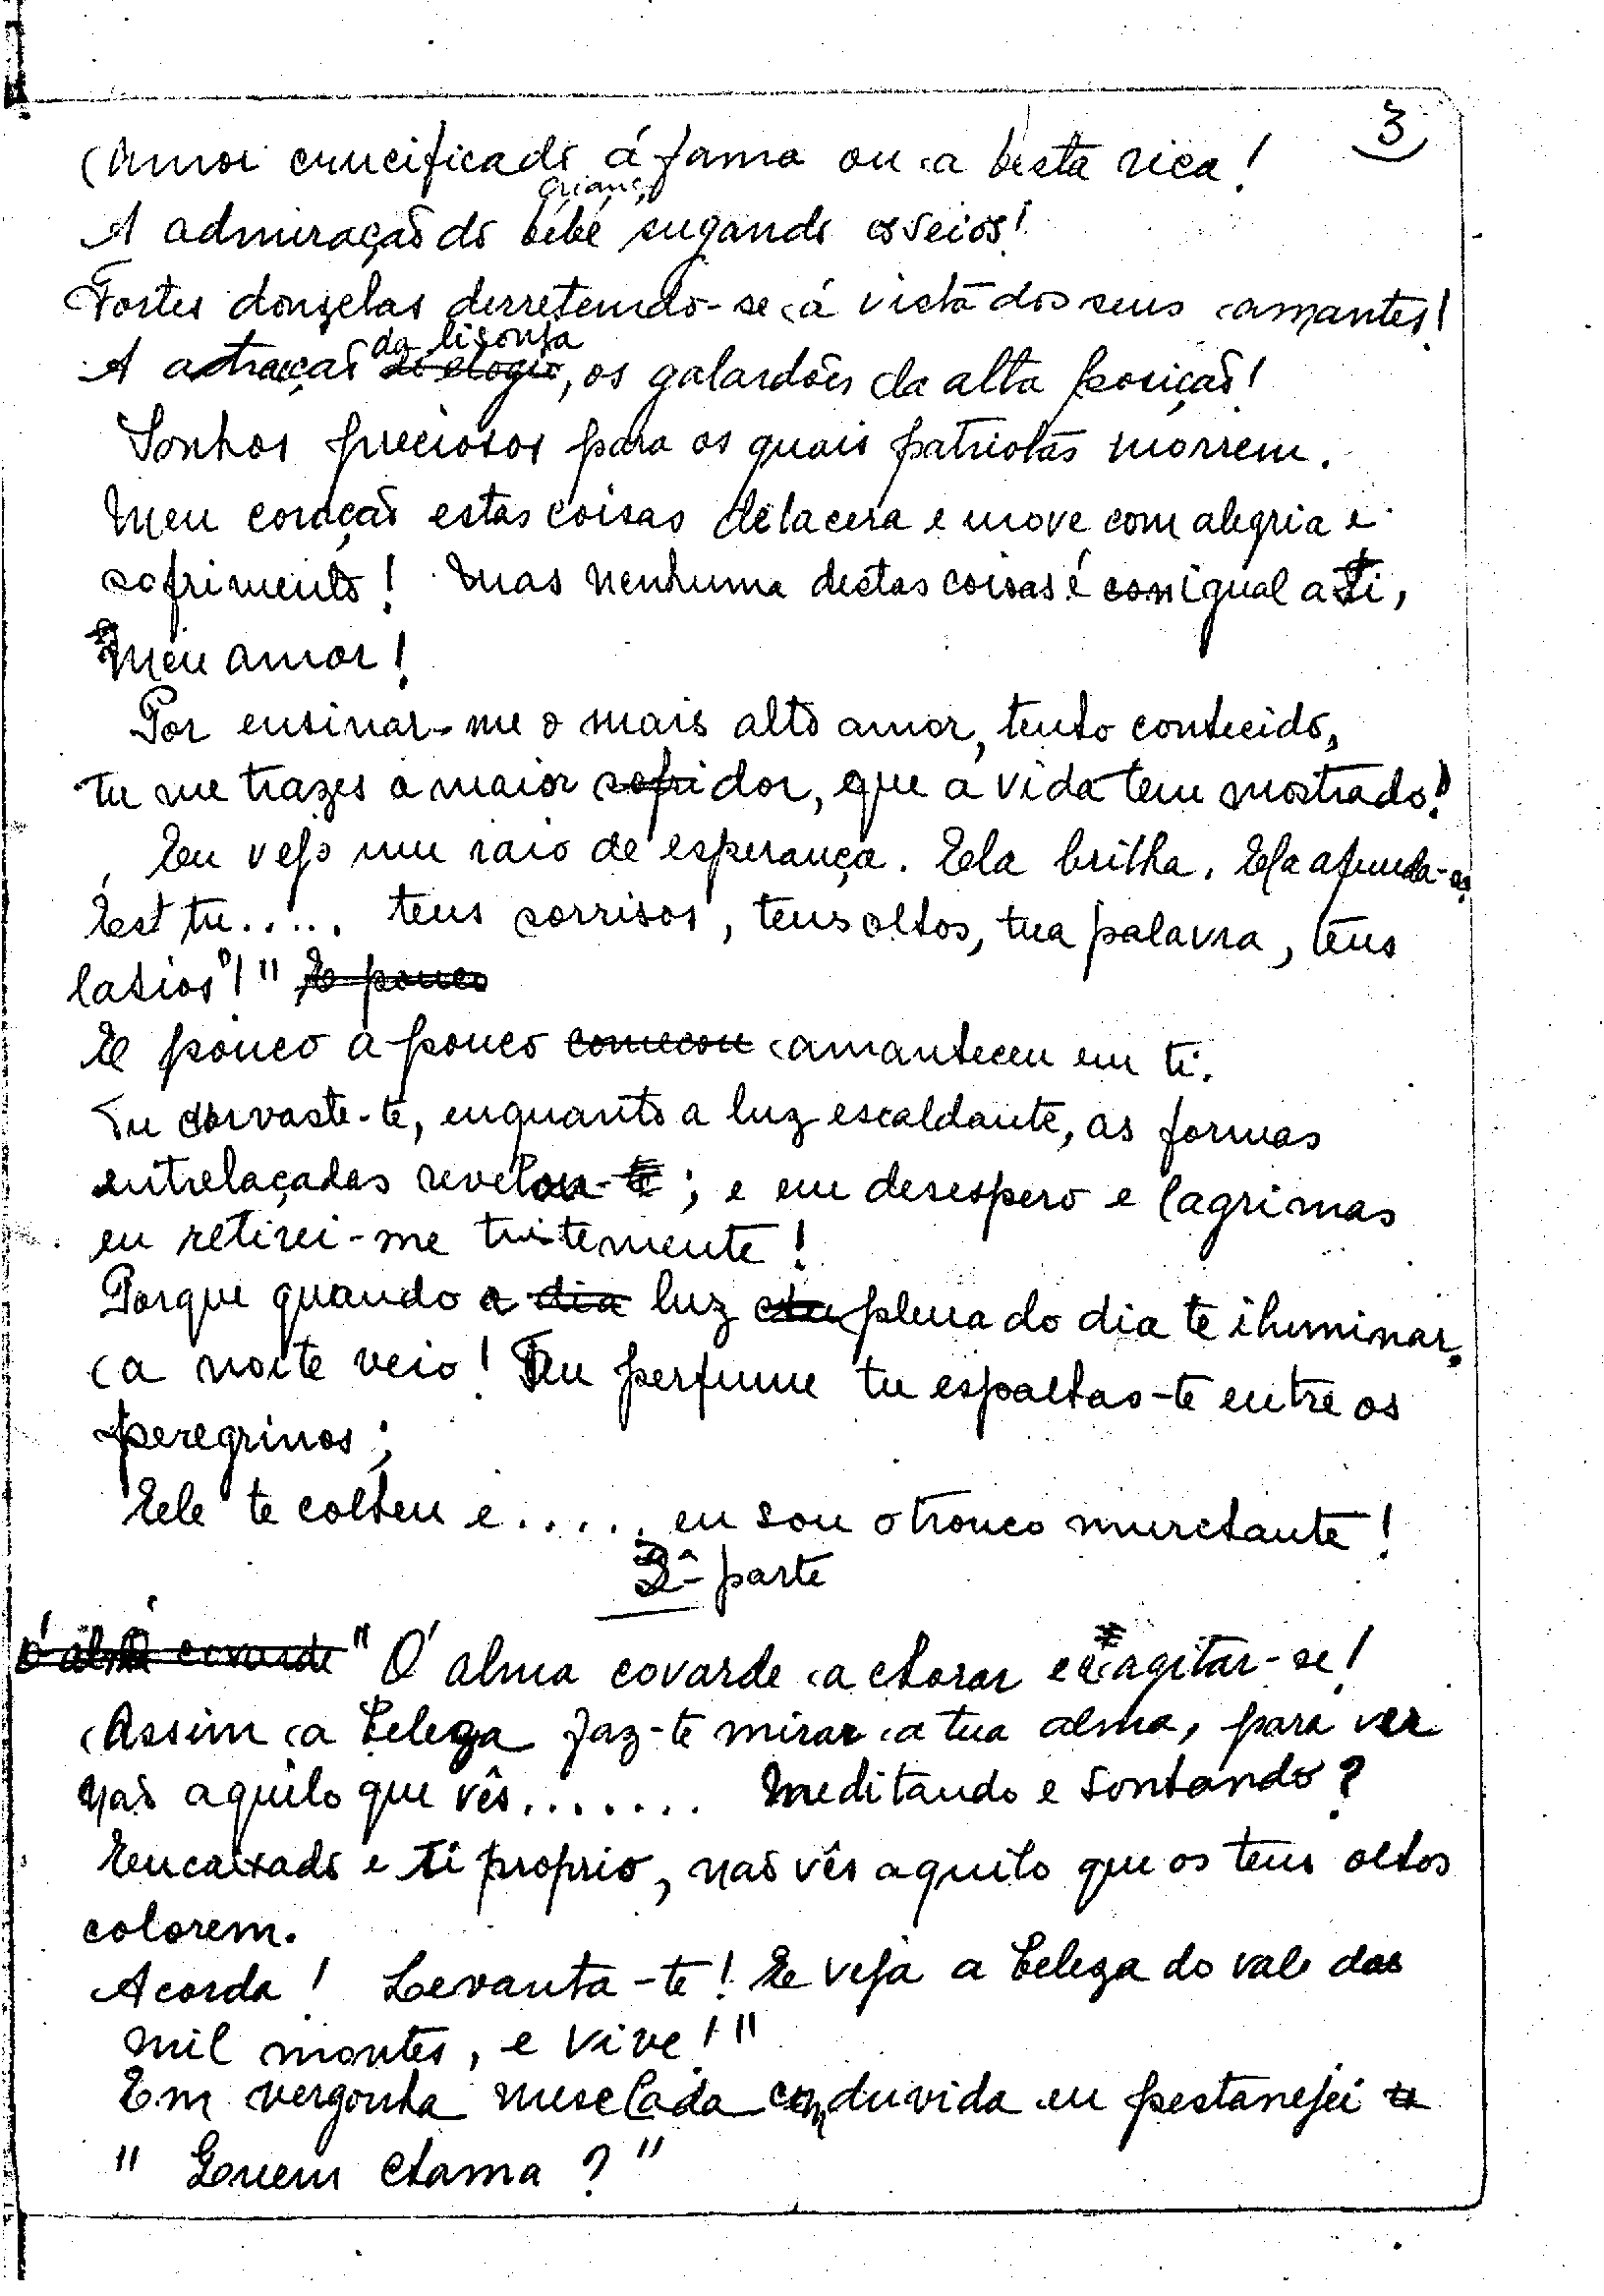 3
Amor crucificado á fama ou a besta rica!
criança
A admiração do bébé sugando os seios!
Fortes donzelas derretendo-se á vista dos seus amantes!
da lisonja
A atracção do elogio, os galardões da alta posição!
Sonhos preciosos para os quais patriotas morrem.
Meu coração estas coisas delacera e move com alegria e
sofrimento! Mas nenhuma destas coisas é com igual a Ti,
Meu amor!
Por ensinar-me o mais alto amor, tenho conhecido,
Tu me trazes a maior sofri dor, que a vida tem mostrado!
Eu vejo um raio de esperança. Ela brilha. Ela afunda-as
Est tu..... teus sorrisos, teus olhos, tua palavra, teus
labios"!" E pouco
E pouco a pouco começou amanheceu em ti.
Tu corvaste-te, enquanto a luz escaldante, as formas
entrelaçadas revelou-te; e em desespero e lagrimas
eu retirei-me tristemente!
Porque quando a dia luz plena do dia te iluminar,
a noite veio! Teu perfume tu espalhas-te entre os
peregrinos;
Ele te colheu e..... eu sou o tronco murchante!
2ª parte
Ó alma covarde " Ó alma covarde a chorar e a agitar-se!
Assim a beleza faz-te mirar a tua alma, para ver
não aquilo que vês....... Meditando e sonhando?
Encaixado e ti proprio, não vês aquilo que os teus olhos
colorem.
Acorda! Levanta-te! E veja a beleza do vale dos
mil montes, e vive!"
Em vergonha mesclada com duvida eu pestanejei
" Quem chama ?"